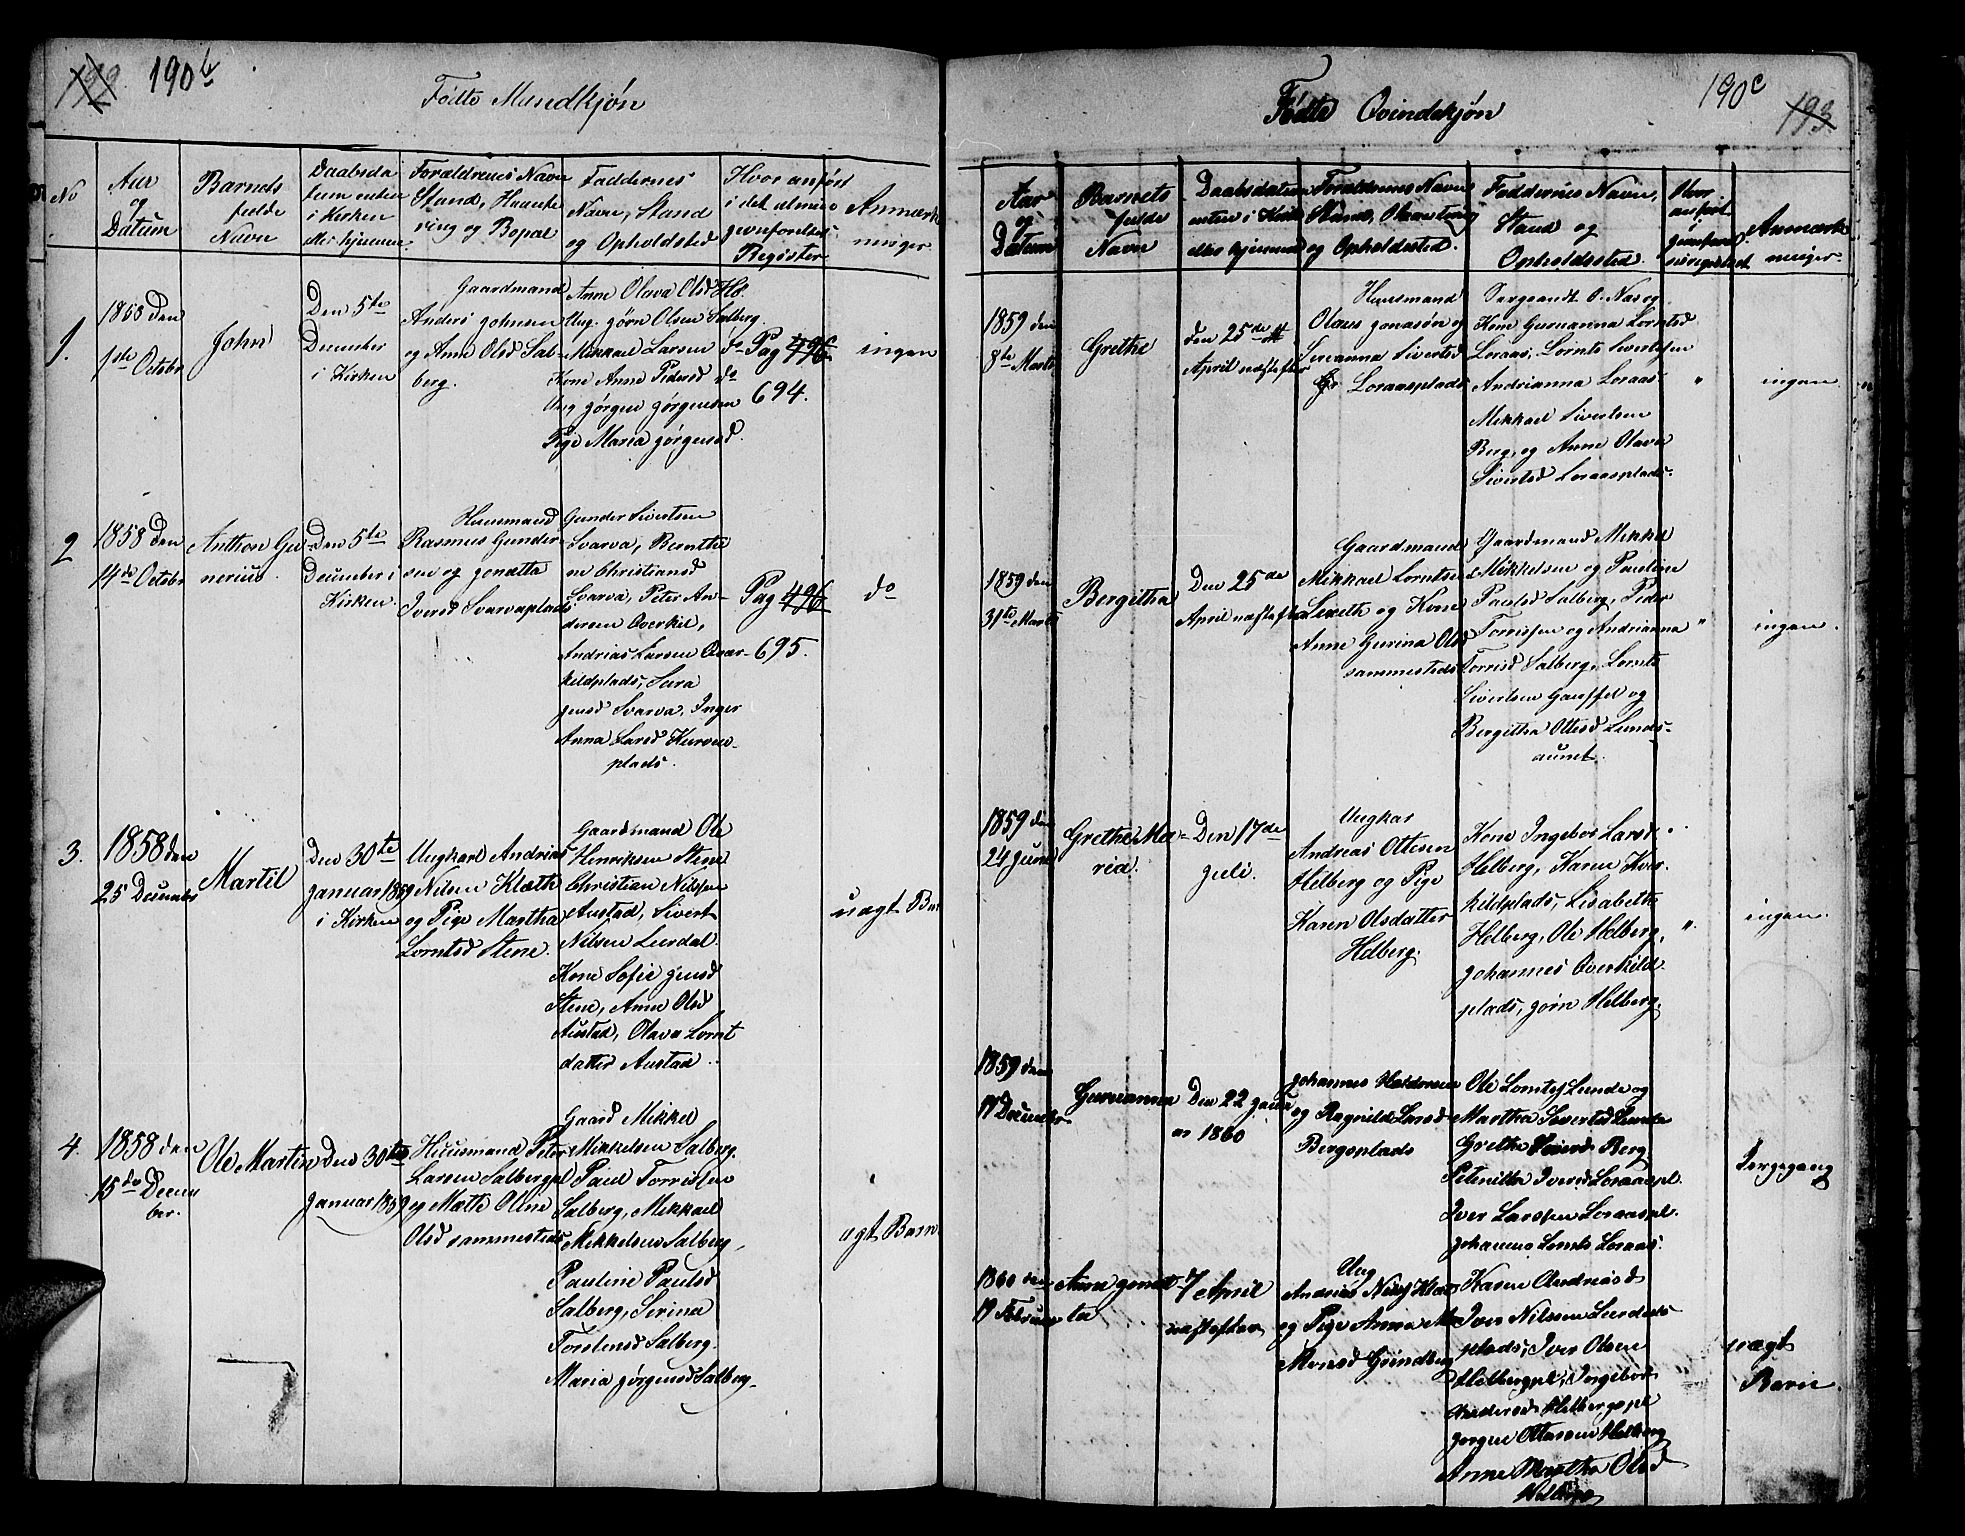 192 190b
Fødte Mandkjøn
No
Aar
og
Datum
Barnets
fulde
Navn
Daabsda
tum enten
i Kirken
eller hjemme
Forældrenes Navn
Stand, Haandte
ring og Bopæl
Faddernes
Navn, Stand
og Opholdsted
Hvor anført
i det almin
Register
Anmærk
ninger
1.
1858 den
1ste Octobr
John
Den 5te
December
i Kirken
Gaardmand
Anders Johnsen
og Anne Olsd Sal-
berg.
Anne Olava Olsd
Ung. Jørn Olsen Salberg
Mikkael Larsen do
Kone Anne Pedersd do
Ung Jørgen Jørgensen
Pige Maria Jørgensd.
Pag 496
694.
ingen
2
1858 den
14de Octobr
Anthon Gu-
nerius
Den 5te
December i
Kirken
Huusmand
Rasmus Gunder
sen og Jonetta
Iversd Svarvaplads
Gunder Sivertsen
Svarva, Bernthe
m Christiansd
Svarva, Peter An-
dersen Overkil,
Andrias Larsen Qvær-
kildplads, Sara
Jensd Svarva, Inger
Anna Larsd
plads.
Pag 496
695.
do
3.
1858 den
25 December
Martil
Den 30te
Januar 1859
i Kirken
Ungkarl Andrias
Nilsen Klæth
og Pige Martha
Lorntsd Stene.
Gaardmand Ole
Henriksen Stene
Christian Nilsen
Austad, Sivert
Nilsen Lurdal
Kone Sofie Jensd
Stene, Anne Olsd
Austad, Olava Lornt
datter Austad
uægt Bar
4.
1858 den
15de Decem
ber.
Ole Martin
Den 30te
Januar 1859
Huusmand Peter
Larsen Salbergpl
og Mette Oline
Olsd sammesteds
Gaard Mikkel
Mikkelsen Salberg.
Paul Torrissen
Salberg, Mikkael
Mikkelsen Salberg,
Pauline Paulsd
Salberg, Serina
Torstensd Salberg.
Maria Jørgensd Salberg.
ægt Barn
190c 193
Fødte Qvindekjøn
Aar
og
Datum
Barnets
fulde
Navn
Daabsdatum
enten i Kirke
eller hjemme
Forældrenes Navn
Stand, Haandtering
og Opholdssted.
Faddernes Navn,
Stand og
Opholdssted
Hvor
anført
Anmærk
ninger
1859 den
8de Marts
Grethe
den 25de
April næstefter
Huusmand
Olaus Jonasøn og
Sereanna Sivertsd
Loraasplads
Sergeandt O. Næs og
Kone Guruanna Lorntsd
Loraas, Lornts Sivertsen
Andrianna Loraas
Mikkael Sivertsen
Berg, og Anne Olava
Sivertsd Loraasplads.
"
ingen
1859 den
31te Marts
Bergitha
Den 25de
April næstefter
Gaardmand
Mikkael Lorntsen
og Kone
Anne Gurina Olsd
sammesteds
Gaardmand Mikkel
Mikkelsen og Pauline
Paulsd Salberg, Peder
Torrissen og Andrianna
Torrisd Salberg, Lornts
Sivertsen og
Bergitha Ottesd Lunds-
aunet.
"
ingen.
1859 den
24 Juni
Grethe Ma-
ria.
Den 17de
Juli.
Ungkar
Andreas Ottesen
Helberg og Pige
Karen Olsdatter
Helberg.
Kone Ingebor Larsd
Helberg, Karen Kver
kildplads, Lisabeth
Helberg, Ole Helberg,
Johannes Overkild-
plads, Jørn Helberg.
"
ingen.
1859 den
17 December
Guruanna
Den 22 Janu
ar 1860
Johannes Haldorsen
og Ragnild Larsd
Bergsplads
Ole Lorntsj Lunde og
Martha Sivertsd Lunde
Grethe Berg
Petenille Iversd Loraaspl.
Iver Larssen Loraaspl.
Johannes Lornts Loraas.
1860 den
19 Februar
Anna Jonet
ta
7 April
næstefter
Ung
Andrias Nilsj Klæt
og Pige Anna M
Monsd Grindberg
Karen Andreasd
Iver Nilssen Lurdals
plads, Iver Olsen
Helbergpl, Ingebor
Andersd Helbergspl
Jørgen Ottessen Helberg
Anne Martha Olsd
Helberg
uægt
Barn